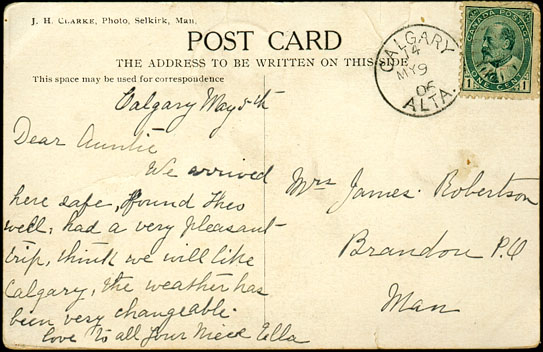 J. H. CLARKE, Photo, Selkirk, Man.
POST CARD
THE ADDRESS TO BE WRITTEN ON THIS SIDE
This space may be used for correspondence
CALGARY
14
MY 9
06
ALTA.
CANADA POSTAGE
1 ONE CENT 1
Calgary May 9th
Dear Auntie
We arrived
here safe, found Theo
well, had a very pleasant
trip, think we will like
Calgary, the weather has
been very changeable.
love to all your niece Ella
Mrs James Robertson
Brandon P.O
Man